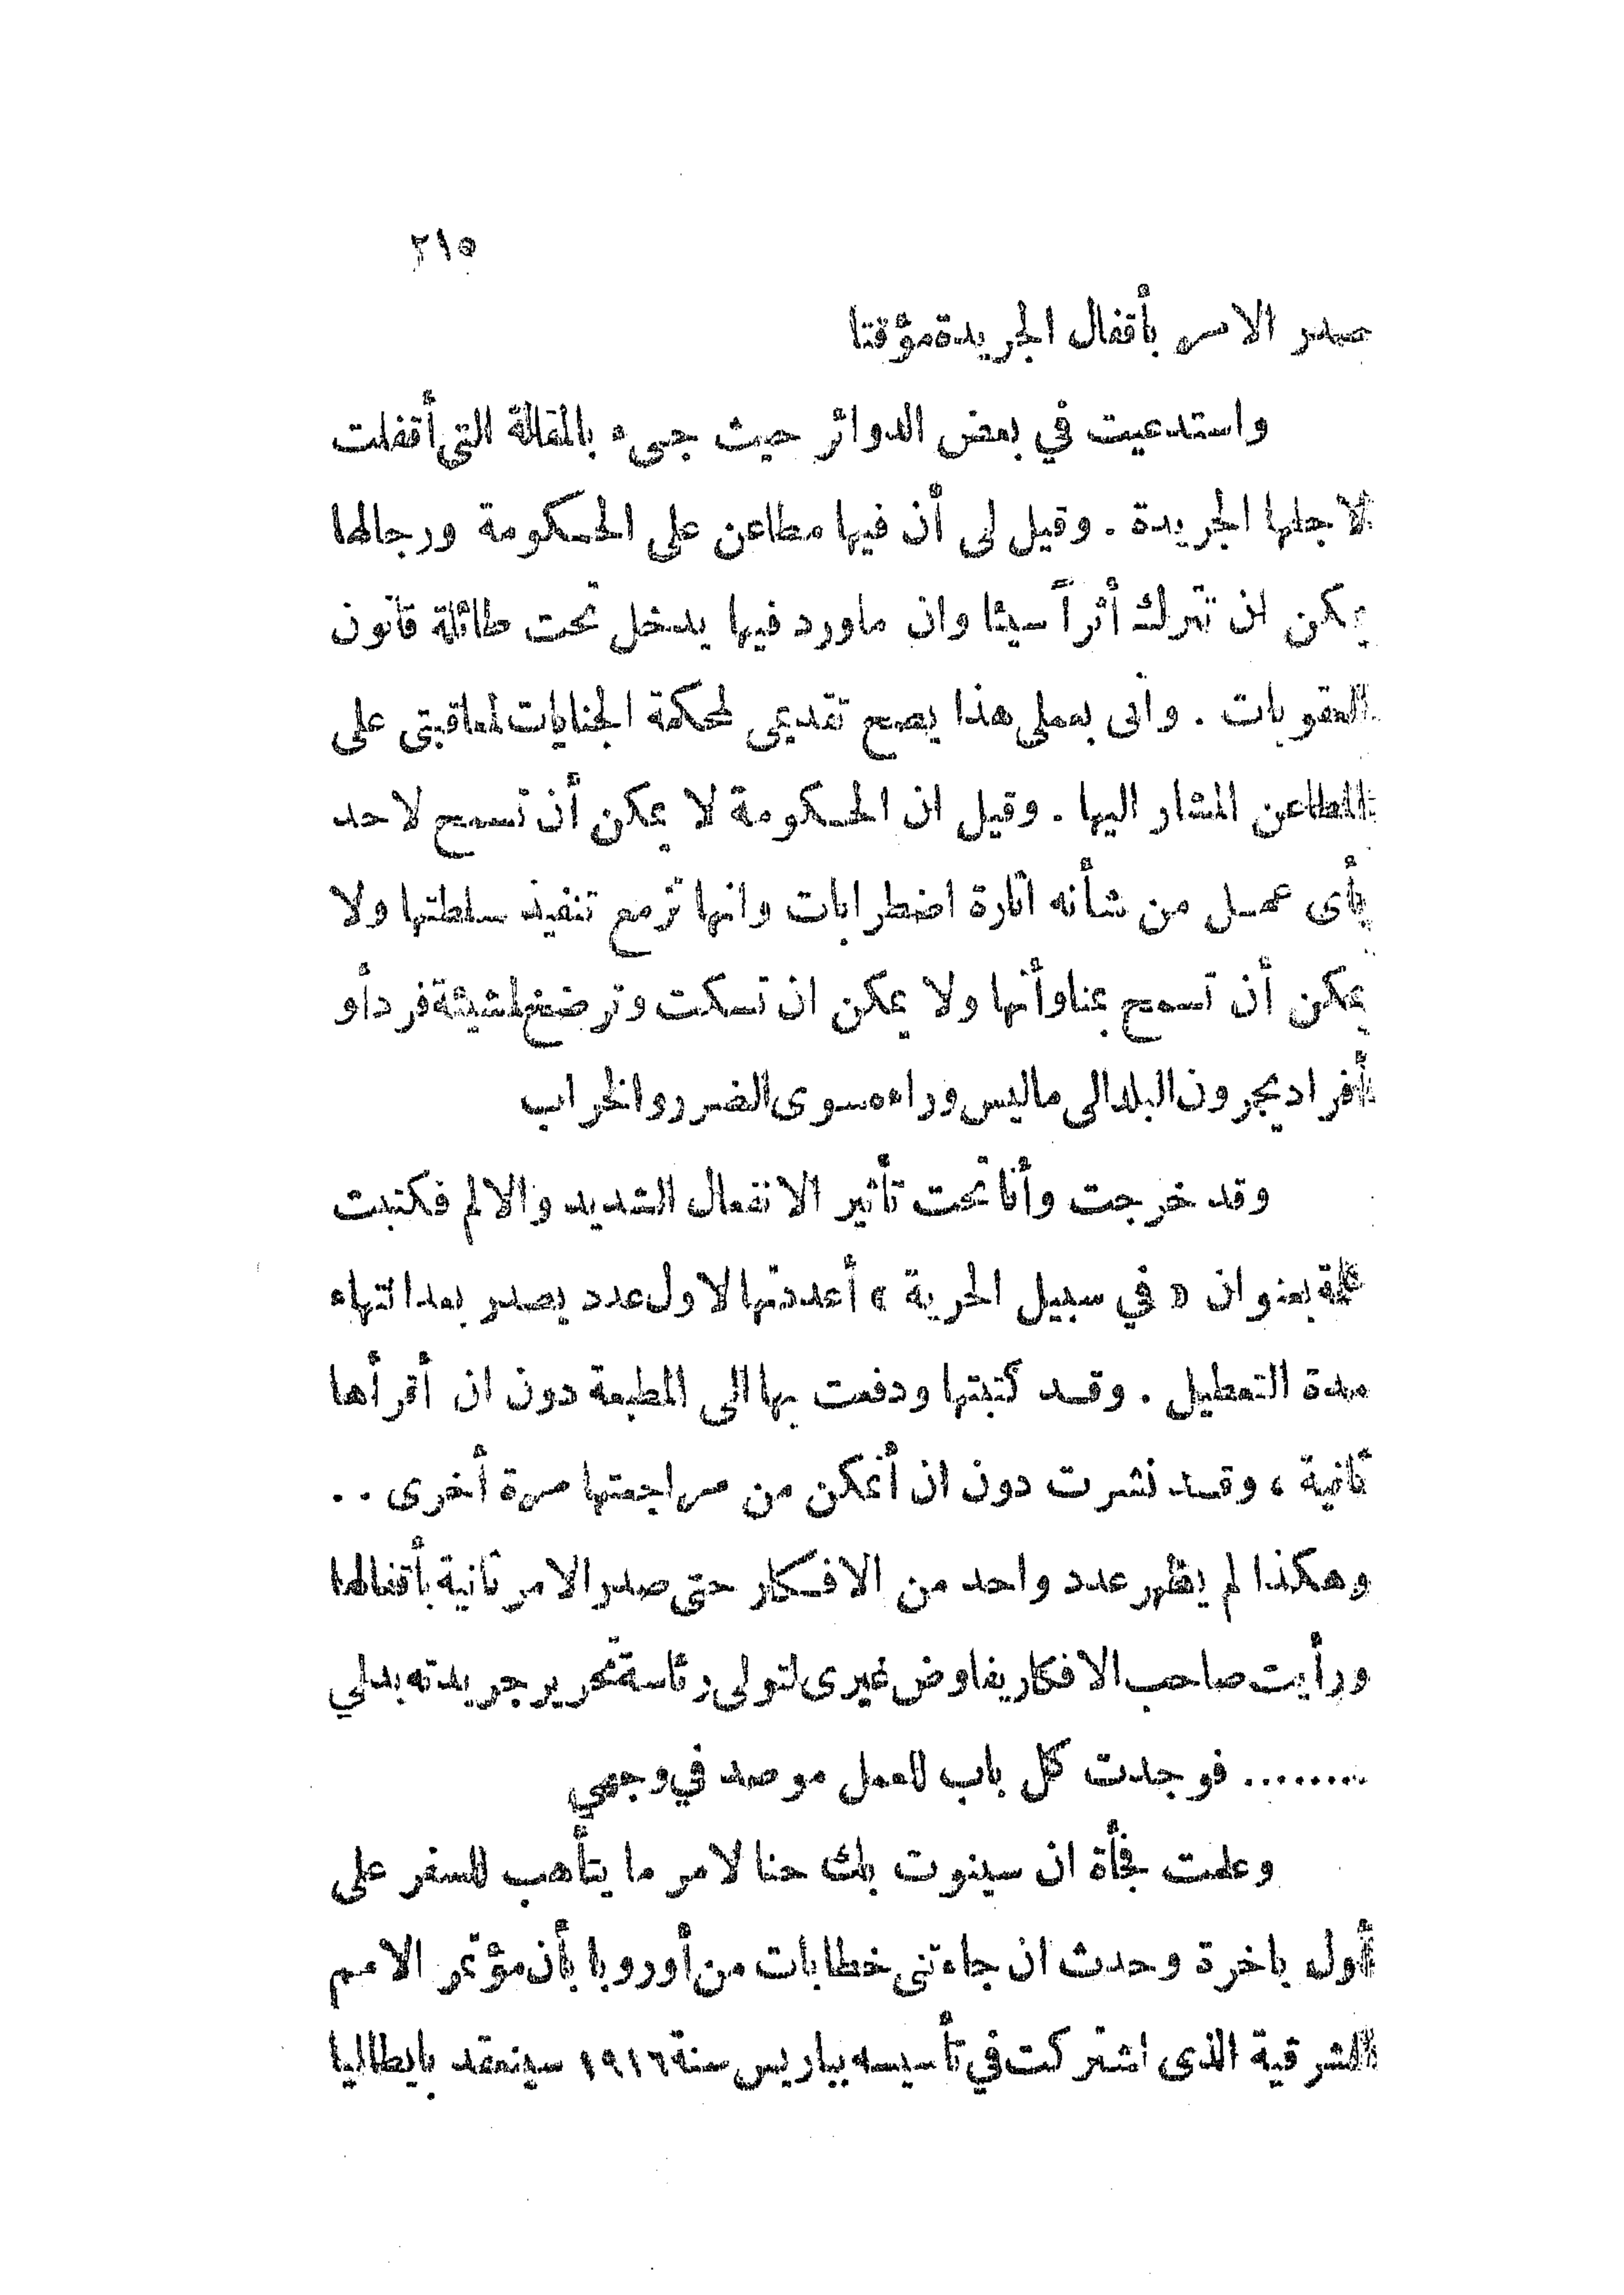 ٢١٥
صدر الامر بأقفال الجريدة مؤقتا
واستدعيت في بعض الدوائر حيث جىء بالمقالة التي أقفلت
لاجلها الجريدة . وقيل لى أن فيها مطاعن على الحكومة ورجالها
يمكن ان تترك أثراً سيئا وان ماورد فيها يدخل تحت طائلة قانون
العقوبات . وانى بعملى هذا يصح تقديمى لمحكمة الجنايات لمعاقبتى على
المطاعن المشار اليها . وقيل ان الحكومة لا يمكن أن تسمح لاحد
بأى عمل من شأنه اثارة اضطرابات وانها تزمع تنفيذ سلطتها ولا
يمكن أن تسمح بمناوأتها ولا يمكن ان تسكت وترضخ لمشيئة فرد أو
أفراد يجرون البلد الى ماليس وراءه سوى الضرر والخراب
وقد خرجت وأنا تحت تأثير الانفعال الشديد والالم فكتبت
كلمة بعنوان « في سبيل الحرية » أعددتها لاول عدد يصدر بعد انتهاء
مدة التعطيل . وقد كتبتها ودفعت بها الى المطبعة دون ان أقرأها
ثانية ، وقد نشرت دون ان أتمكن من مراجعتها مرة أخرى . .
وهكذا لم يظهر عدد واحد من الافكار حتى صدر الامر ثانية بأقفالها
ورأيت صاحب الافكار يفاوض غيرى لتولى رئاسة تحرير جريدته بدلي
........ فوجدت كل باب للعمل موصد في وجهي
وعلمت فجأة ان سينوت بك حنا لامر ما يتأهب للسفر على
أول باخرة وحدث ان جاءتنى خطابات من أوروبا بأن مؤتمر الامم
الشرقية الذى اشتركت في تأسيسه بباريس سنة ١٩١٦ سينعقد بايطاليا